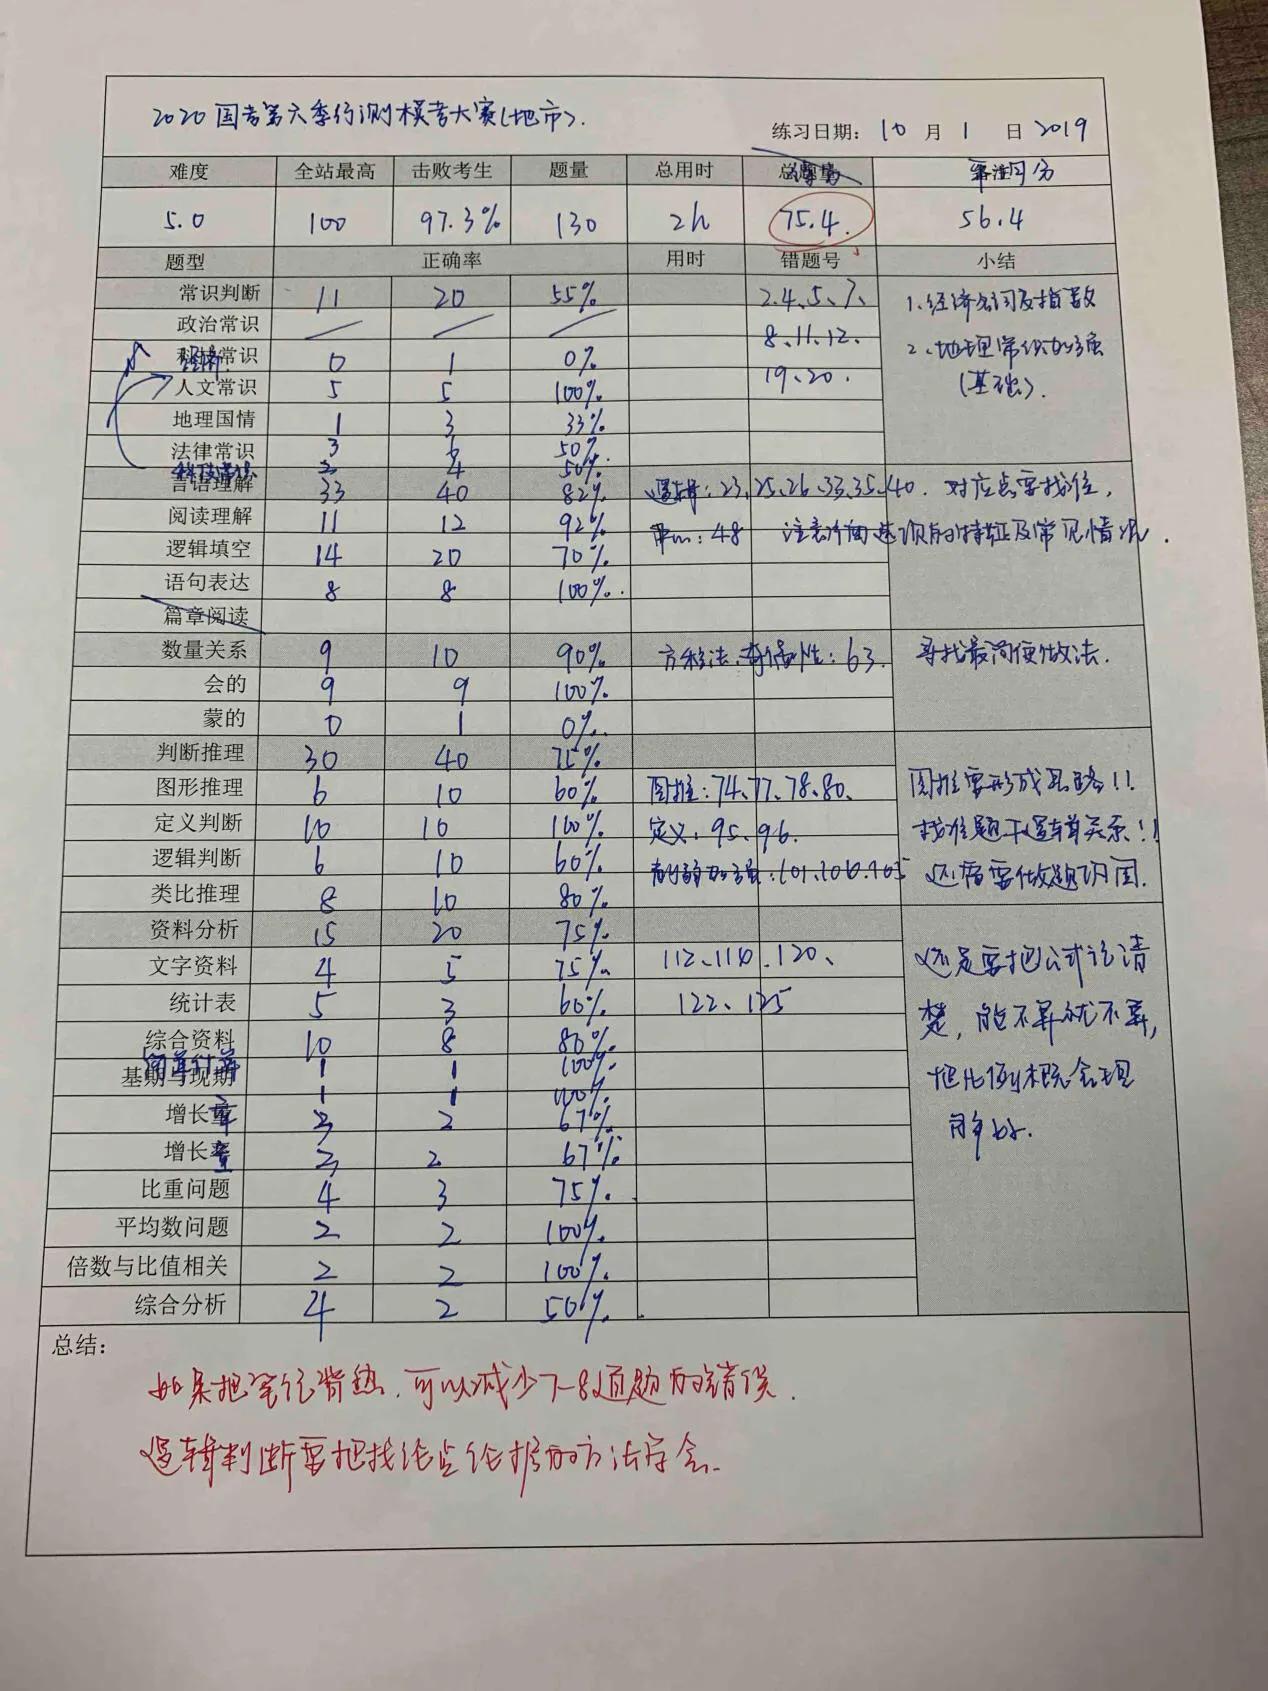 2020国考第六季行测模考大赛(地市).
练习日期: 10 月 1 日 2019
难度 全站最高 击败考生 题量 总用时 平均分
5.0 100 97.3% 130 2h 75.4. 56.4
题型 正确率 用时 错题号 小结
常识判断 11 20 55% 2.4、5、7、 1、经济名词及指数
政治常识 8、11、12、 2、地理常识加强
经济 常识 0 1 0% 19、20. (基础).
人文常识 5 5 100%
地理国情 1 3 33%
法律常识 3 6 50%
科技常识 2 4 50%
言语理解 33 40 82% 逻辑:23、25、26、33、35、40. 对应点要找准,
阅读理解 11 12 92% 中心:48 注意片面选项的特征及常见情况.
逻辑填空 14 20 70%
语句表达 8 8 100%.
篇章阅读
数量关系 9 10 90% 方程法、奇偶性:63. 寻找最简便做法.
会的 9 9 100%
蒙的 0 1 0%.
判断推理 30 40 75%
图形推理 6 10 60% 图推:74、77、78、80、 图推要形成思路!!
定义判断 10 10 100% 定义:95、96. 找准题干逻辑关系!!
逻辑判断 6 10 60% 削弱加强:101、106、105 还需要做题巩固.
类比推理 8 10 80%
资料分析 15 20 75%
文字资料 4 5 75% 112、110、120、 还是要把公式记清
统计表 5 3 60% 122、125 楚,能不算就不算,
综合资料 10 8 80%
简单计算 1 1 100% 把比例概念理
基期与现期 1 1 100% 解好.
增长率 3 2 67%
增长量 3 2 67%
比重问题 4 3 75%.
平均数问题 2 2 100%.
倍数与比值相关 2 2 100%.
综合分析 4 2 50%.
总结:
如果把笔记背熟,可以减少7-8道题的错误.
逻辑判断要把找论点论据的方法学会.